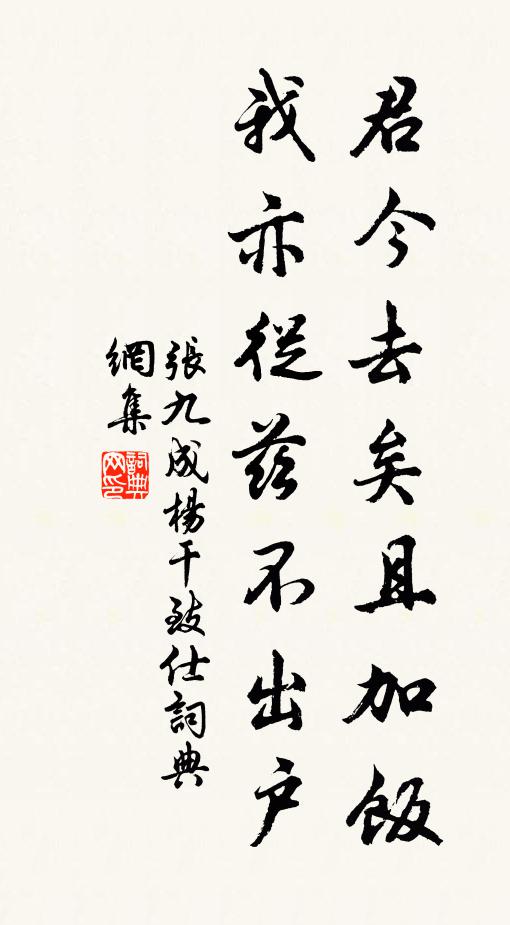 君今去矣且加飯
我亦從茲不出戶
張九成楊干致仕詞典
網集
詞典網印